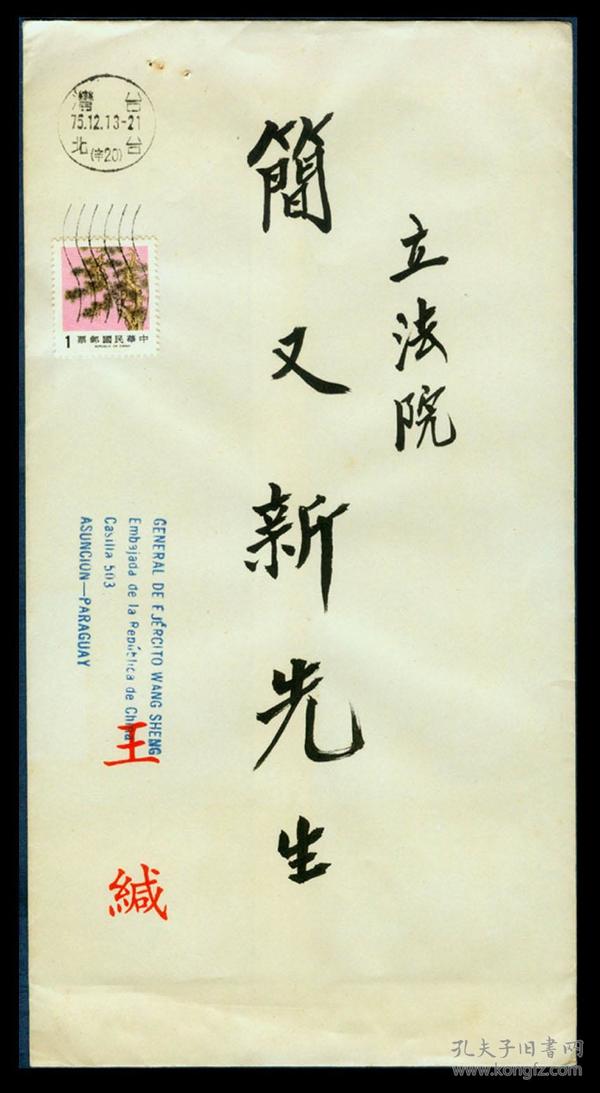 立法院
簡又新先生
台灣
75.12.13-21
(辛20)
台北
中華民國郵票
REPUBLIC OF CHINA
1
GENERAL DE EJÉRCITO WANG SHENG
Embajada de la República de China
Casilla 503
ASUNCION—PARAGUAY
王
緘
孔夫子旧書网
www.kongfz.com